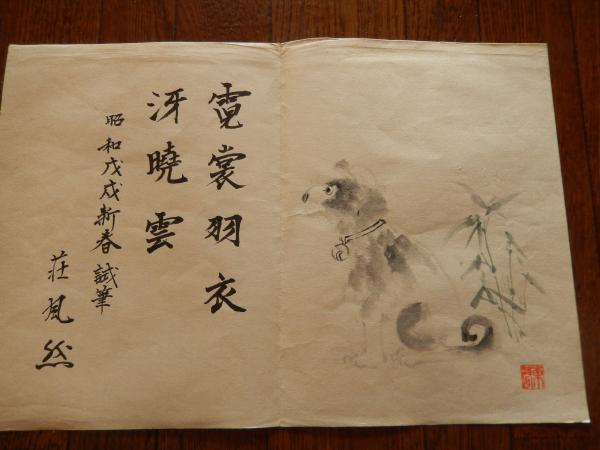 霓裳羽衣
冴曉雲
昭和戊戌新春試筆
荘風